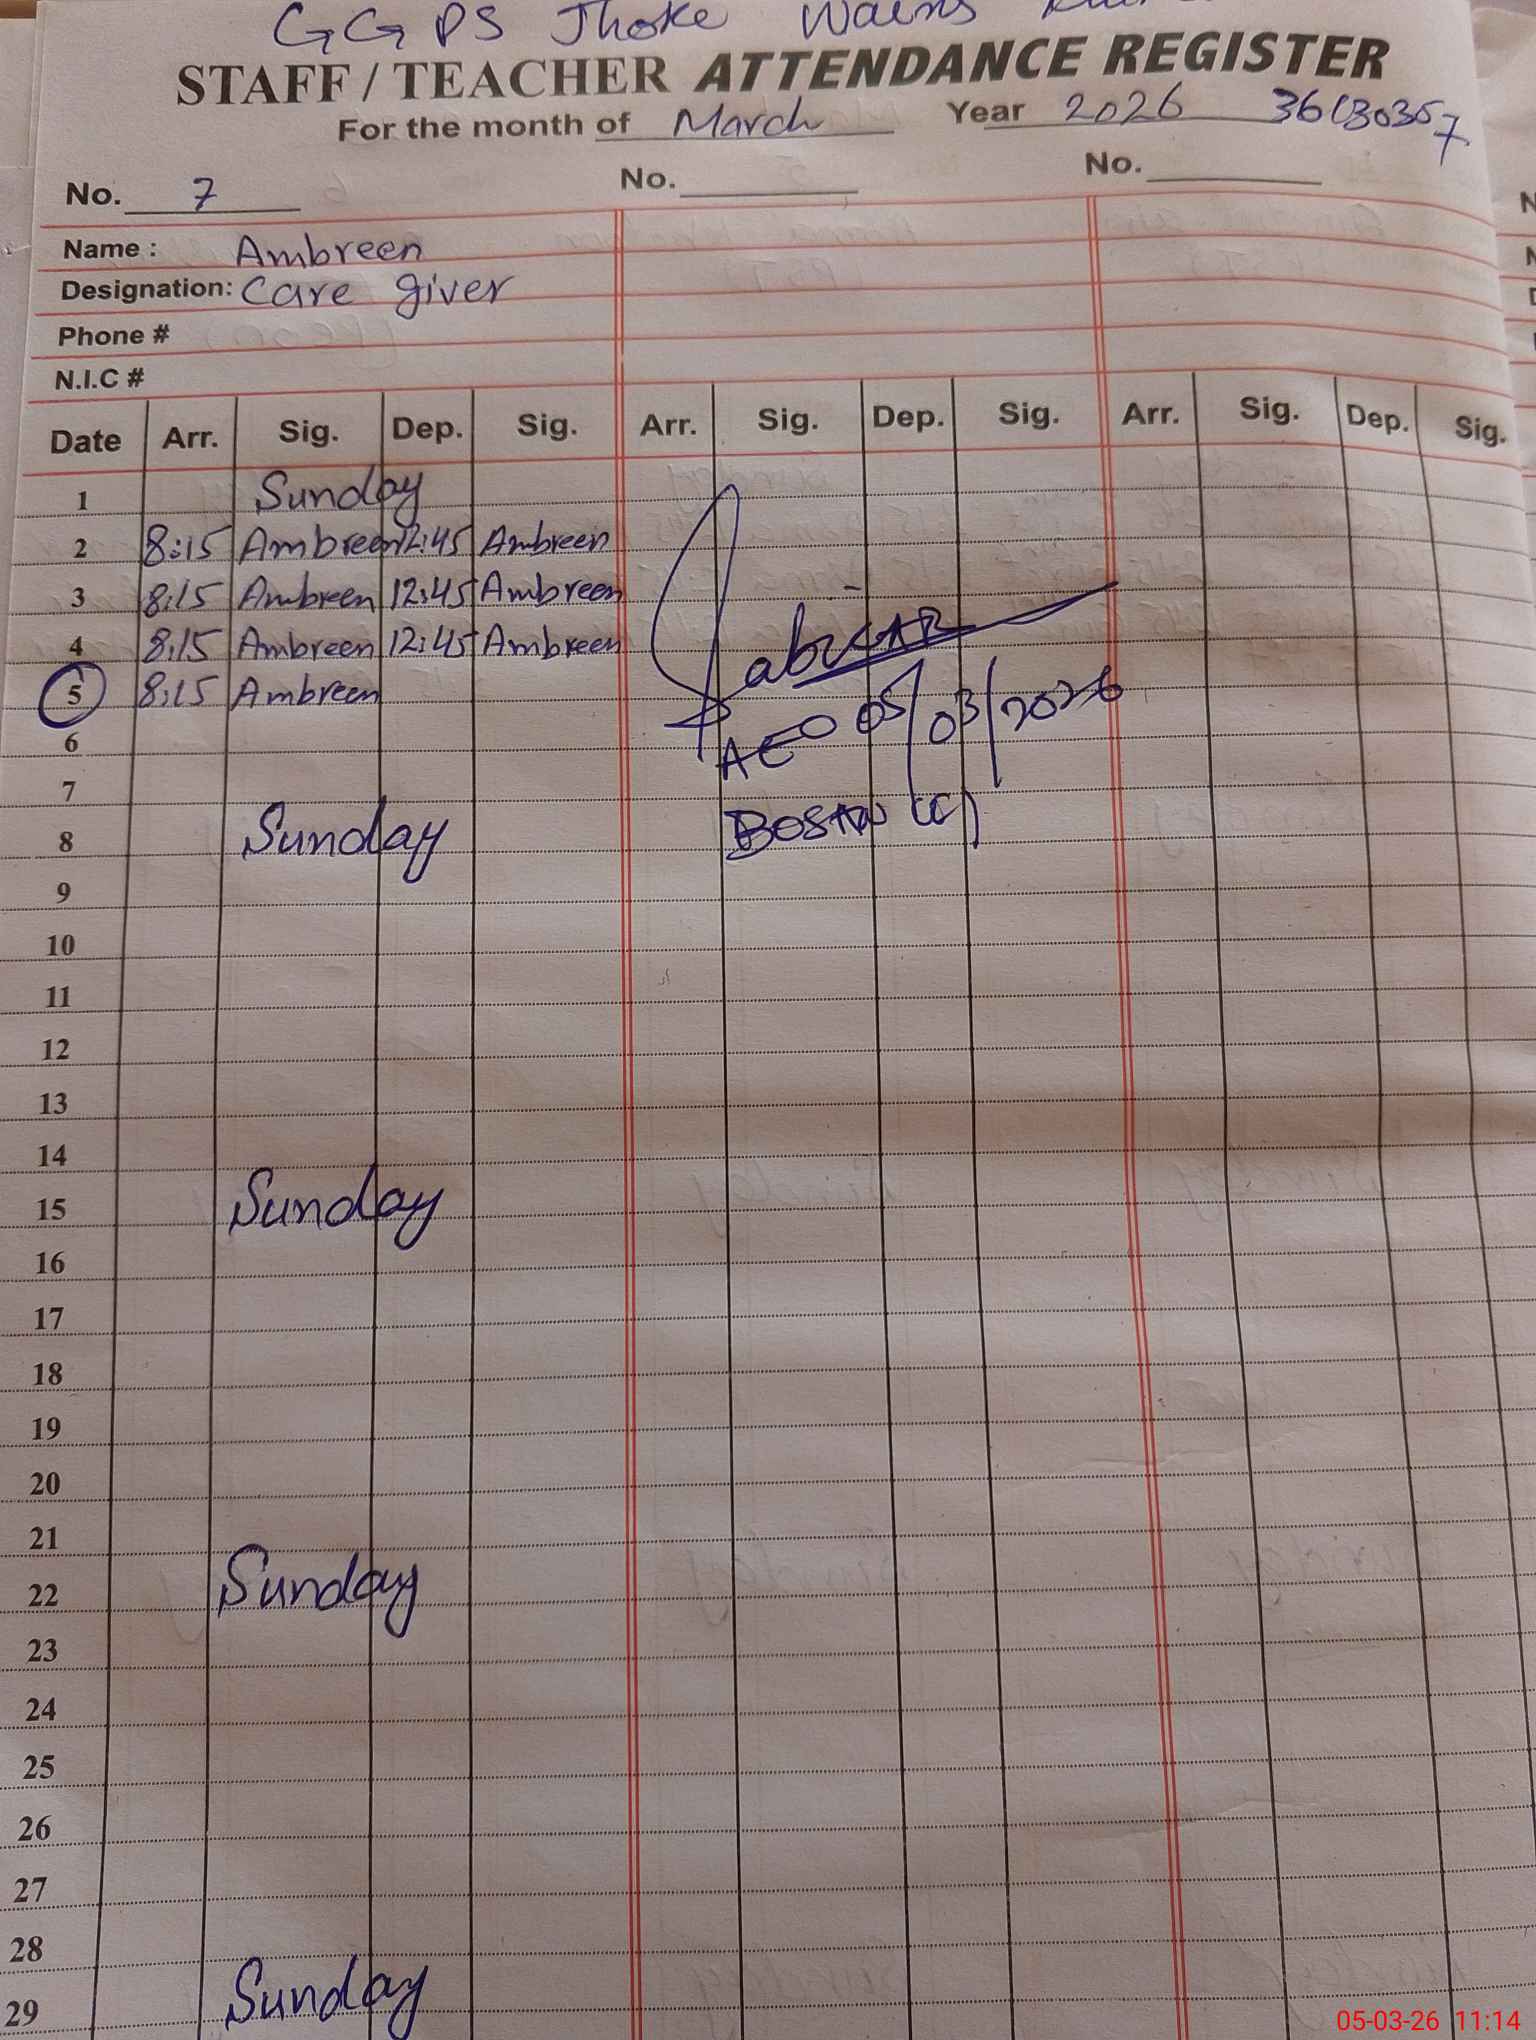 GGPS Jhoke Wains
STAFF / TEACHER ATTENDANCE REGISTER
For the month of March Year 2026 36130307
No. 7 No. No.
Name : Ambreen
Designation: Care giver
Phone #
N.I.C #
Date Arr. Sig. Dep. Sig. Arr. Sig. Dep. Sig. Arr. Sig. Dep. Sig.
1 Sunday
2 8:15 Ambreen 12:45 Ambreen
3 8:15 Ambreen 12:45 Ambreen
4 8:15 Ambreen 12:45 Ambreen
5 8:15 Ambreen
AEO 05/03/2026
6
7
8 Sunday
9
10
11
12
13
14
15 Sunday
16
17
18
19
20
21
22 Sunday
23
24
25
26
27
28
29 Sunday
05-03-26 11:14